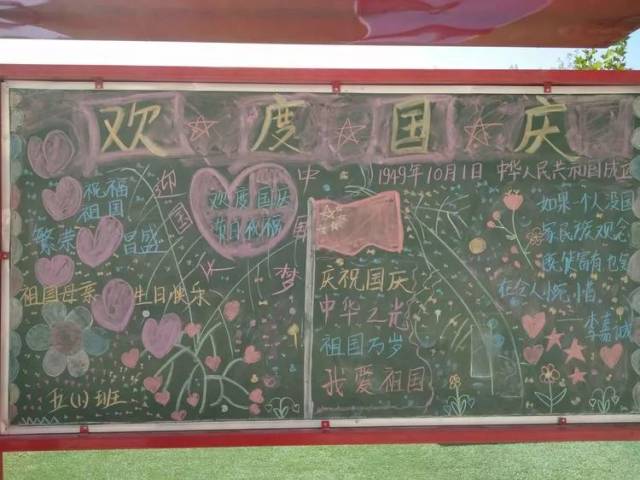 欢度国庆
祝福
祖国
繁荣昌盛
祖国母亲生日快乐
五(1)班
迎国庆
欢度国庆
中国梦
1949年10月1日 中华人民共和国成立
庆祝国庆
中华之光
祖国万岁
我爱祖国
如果一个人没国
家民族观念
既使富有也
令人惋惜
李嘉诚